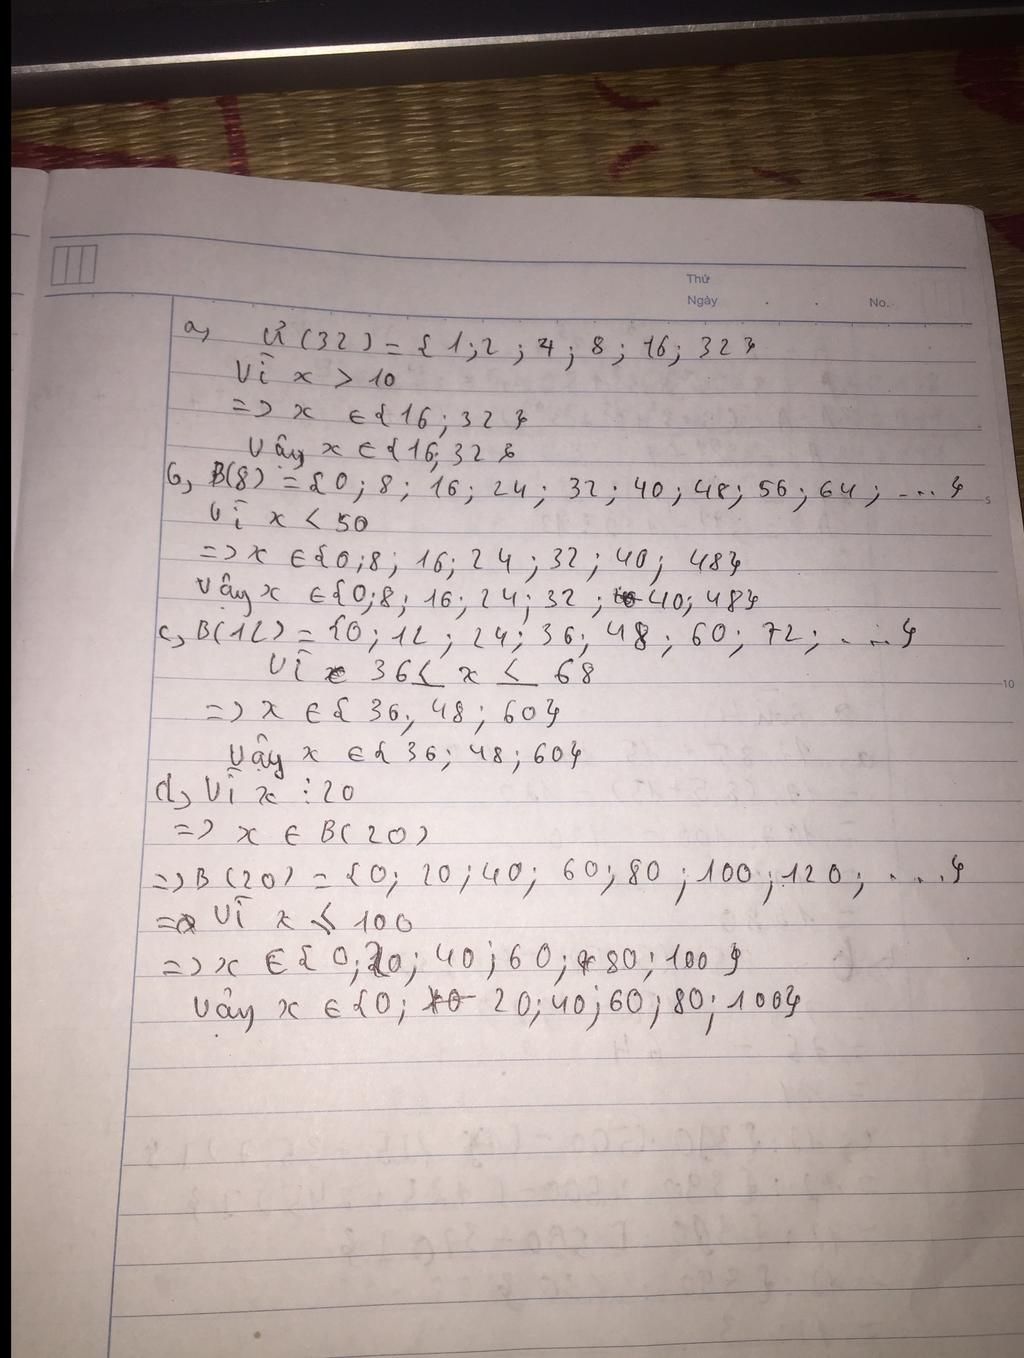 Thứ
Ngày . . No.
a, Ư(32) = {1; 2; 4; 8; 16; 32}
Vì x > 10
=> x ∈ {16; 32}
Vậy x ∈ {16; 32}
b, B(8) = {0; 8; 16; 24; 32; 40; 48; 56; 64; ...}
5
Vì x < 50
=> x ∈ {0; 8; 16; 24; 32; 40; 48}
Vậy x ∈ {0; 8; 16; 24; 32; 40; 48}
c, B(12) = {0; 12; 24; 36; 48; 60; 72; ...}
Vì 36 ≤ x ≤ 68
10
=> x ∈ {36; 48; 60}
Vậy x ∈ {36; 48; 60}
d, Vì x ⋮ 20
=> x ∈ B(20)
=> B(20) = {0; 20; 40; 60; 80; 100; 120; ...}
= Vì x ≤ 100
=> x ∈ {0; 20; 40; 60; 80; 100}
Vậy x ∈ {0; 20; 40; 60; 80; 100}